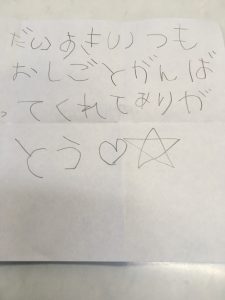 だいあきいつも
おしごとがんば
ってくれてありが
とう♡☆